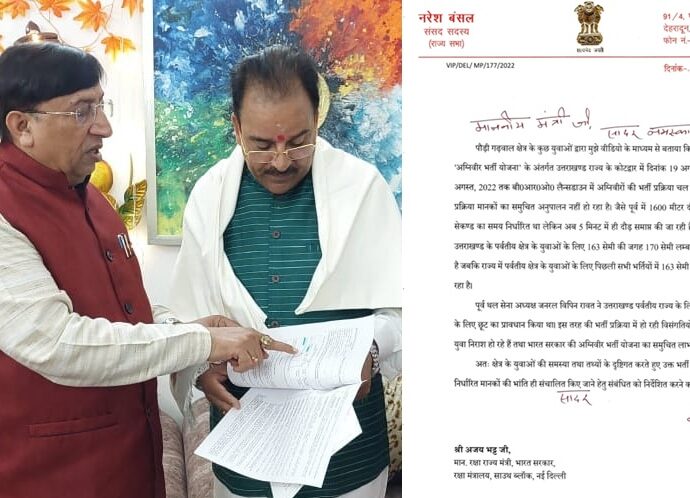 नरेश बंसल
संसद सदस्य
(राज्य सभा)
सत्यमेव जयते
91/4,
देहरादून,
फोन नं.-
VIP/DEL/ MP/177/2022
दिनांक-
माननीय मंत्री जी,
सादर नमस्कार
पौड़ी गढ़वाल क्षेत्र के कुछ युवाओं द्वारा मुझे वीडियो के माध्यम से बताया कि
'अग्निवीर भर्ती योजना' के अंतर्गत उत्तराखण्ड राज्य के कोटद्वार में दिनांक 19 अग
अगस्त, 2022 तक बी0आर0ओ0 लैन्सडाउन में अग्निवीरों की भर्ती प्रक्रिया चल
प्रक्रिया मानकों का समुचित अनुपालन नहीं हो रहा है। जैसे पूर्व में 1600 मीटर दौ
सेकण्ड का समय निर्धारित था लेकिन अब 5 मिनट में ही दौड़ समाप्त की जा रही है
उत्तराखण्ड के पर्वतीय क्षेत्र के युवाओं के लिए 163 सेमी की जगह 170 सेमी लम्बा
है जबकि राज्य में पर्वतीय क्षेत्र के युवाओं के लिए पिछली सभी भर्तियों में 163 सेमी
रहा है।
पूर्व थल सेना अध्यक्ष जनरल विपिन रावत ने उत्तराखण्ड पर्वतीय राज्य के लि
के लिए छूट का प्रावधान किया था। इस तरह की भर्ती प्रक्रिया में हो रही विसंगतियों
युवा निराश हो रहे हैं तथा भारत सरकार की अग्निवीर भर्ती योजना का समुचित लाभ
अतः क्षेत्र के युवाओं की समस्या तथा तथ्यों के दृष्टिगत करते हुए उक्त भर्ती
निर्धारित मानकों की भांति ही संचालित किए जाने हेतु संबंधित को निर्देशित करने क
सादर
श्री अजय भट्ट जी,
मान. रक्षा राज्य मंत्री, भारत सरकार,
रक्षा मंत्रालय, साउथ ब्लॉक, नई दिल्ली